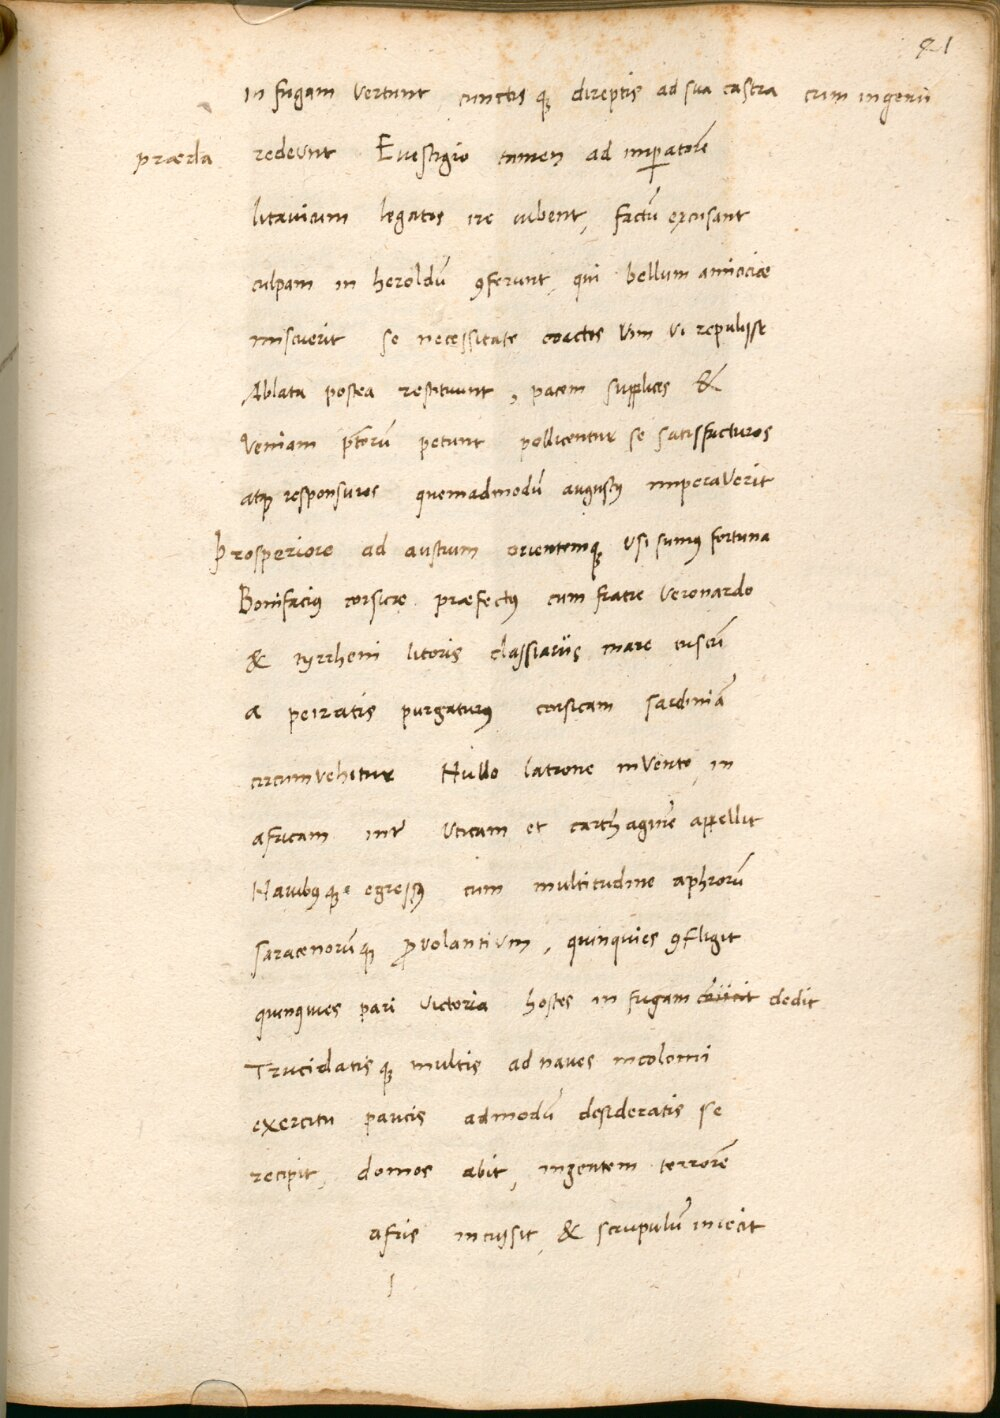 91
in fugam vertunt cunctisq; direptis ad sua castra cum ingenti
præda redeunt Evestigio tamen ad imperatorē
litavicum legatos ire iubent, factū excusant
culpam in heroldū ꝯferunt, qui bellum amicicię
miscuerit se necessitate coactos vim vi repulisse
Ablata postea restituunt, pacem supplices &
veniam ptorū petunt pollicentur se satisfacturos
atq; responsuros quemadmodū augustꝰ imperaverit
Prosperiore ad austrum orientemq; usi sumꝰ fortuna
Bonifaciꝰ corsicæ præfectꝰ cum fratre veronardo
& tyrrheni litoris classiariis mare tuscū
a peiratis purgaturꝰ corsicam sardiniā
circumvehitur Nullo latrone invento, in
africam intr uticam et carthaginē appellit
Navibꝰq; egressꝰ cum multitudine aphrorū
saracenorūq; ꝓvolantium, quinquies ꝯfligit
quinquies pari victoria hostes in fugam cōiicit dedit
Trucidatisq; multis ad naves incolomi
exercitu paucis admodū desideratis se
recipit, domos abit, ingentem terrorē
afris incussit, & scrupulū iniecit